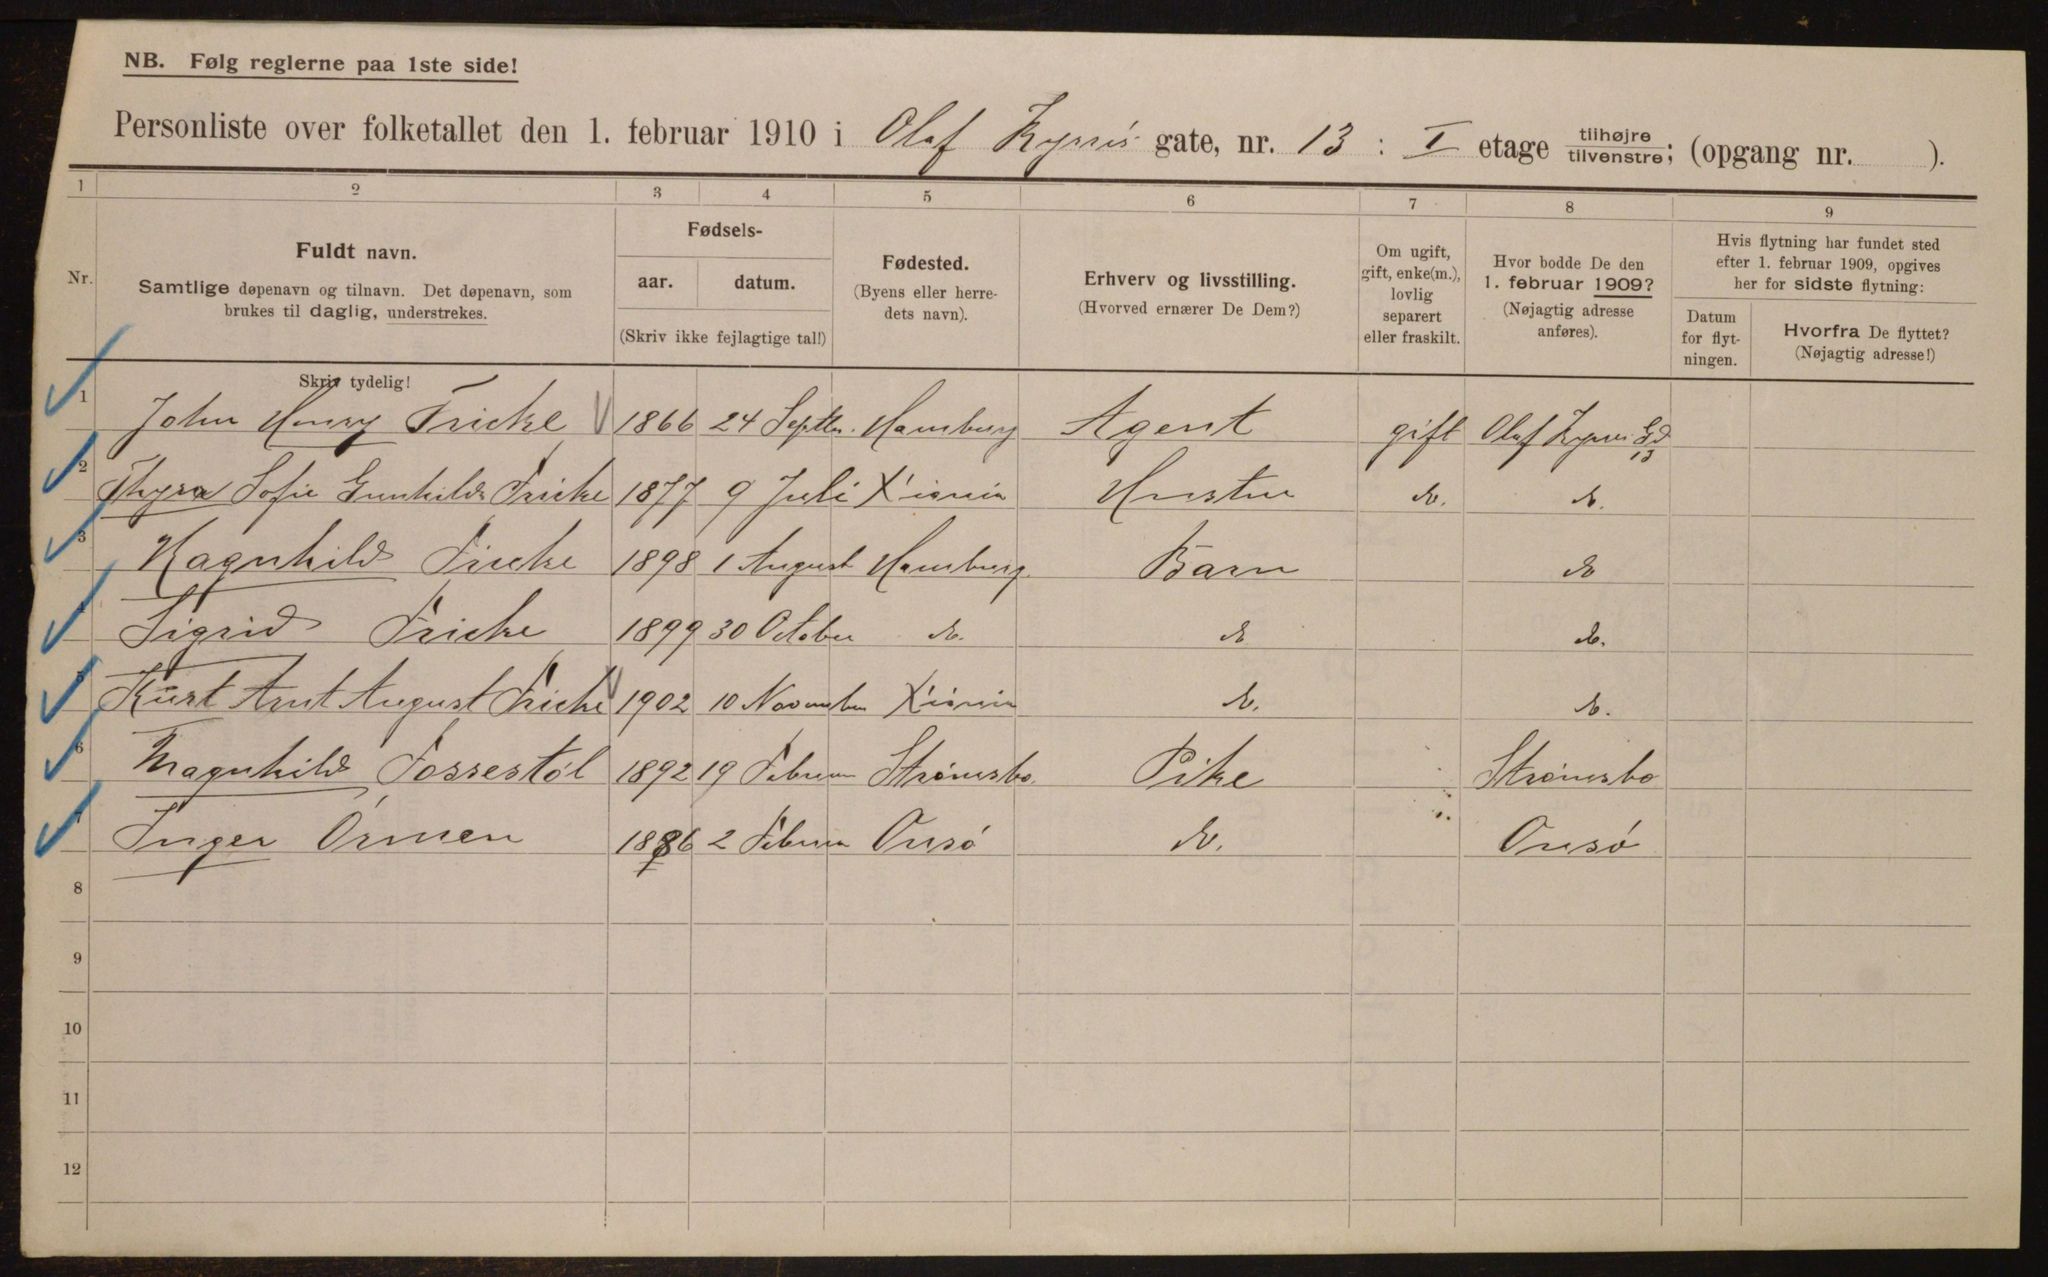 NB. Følg reglerne paa 1ste side!
Personliste over folketallet den 1. februar 1910 i Olaf Ryes gate, nr. 13 : I etage tilhøjre/tilvenstre; (opgang nr. ).
1 2 3 4 5 6 7 8 9
Nr.
Fuldt navn.
Samtlige døpenavn og tilnavn. Det døpenavn, som
brukes til daglig, understrekes.
Fødsels-
aar. datum.
(Skriv ikke fejlagtige tal!)
Fødested.
(Byens eller herre-
dets navn).
Erhverv og livsstilling.
(Hvorved ernærer De Dem?)
Om ugift,
gift, enke(m.),
lovlig
separert
eller fraskilt.
Hvor bodde De den
1. februar 1909?
(Nøjagtig adresse
anføres).
Hvis flytning har fundet sted
efter 1. februar 1909, opgives
her for sidste flytning:
Datum
for flyt-
ningen.
Hvorfra De flyttet?
(Nøjagtig adresse!)
Skriv tydelig!
1 John Henry Fricke 1866 24 Septbr. Hamburg Agent gift Olaf Ryes Gd 13
2 Thyra Sofie Gunhilda Fricke 1877 9 Juli X'iania Hustru do. do.
3 Ragnhild Fricke 1898 1 August Hamburg. Barn do
4 Sigrid Fricke 1899 30 October do. do do.
5 Kurt Arnt August Fricke 1902 10 November X'iania do. do.
6 Magnhild Fossestøl 1892 19 Februar Strømsbo. Pike Strømsbo
7 Inger Ørmen 1886 2 Februar Onsø do. Onsø
8
9
10
11
12